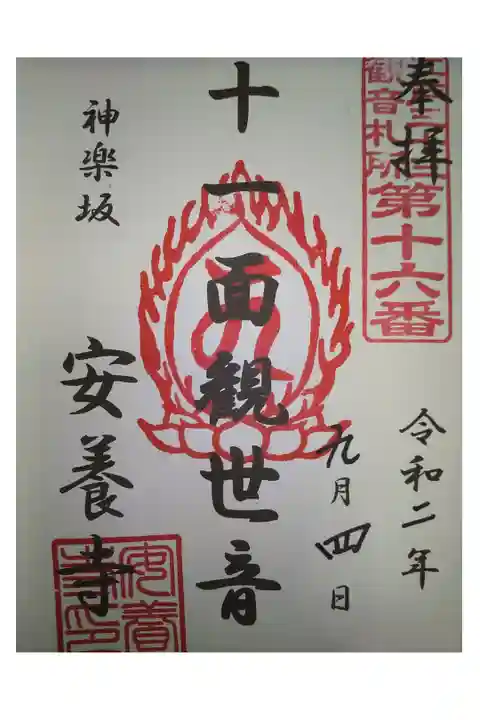 奉拝
江戸三十三
観音札所
第十六番
令和二年
九月四日
十一面観世音
神楽坂
安養寺
安養
寺印